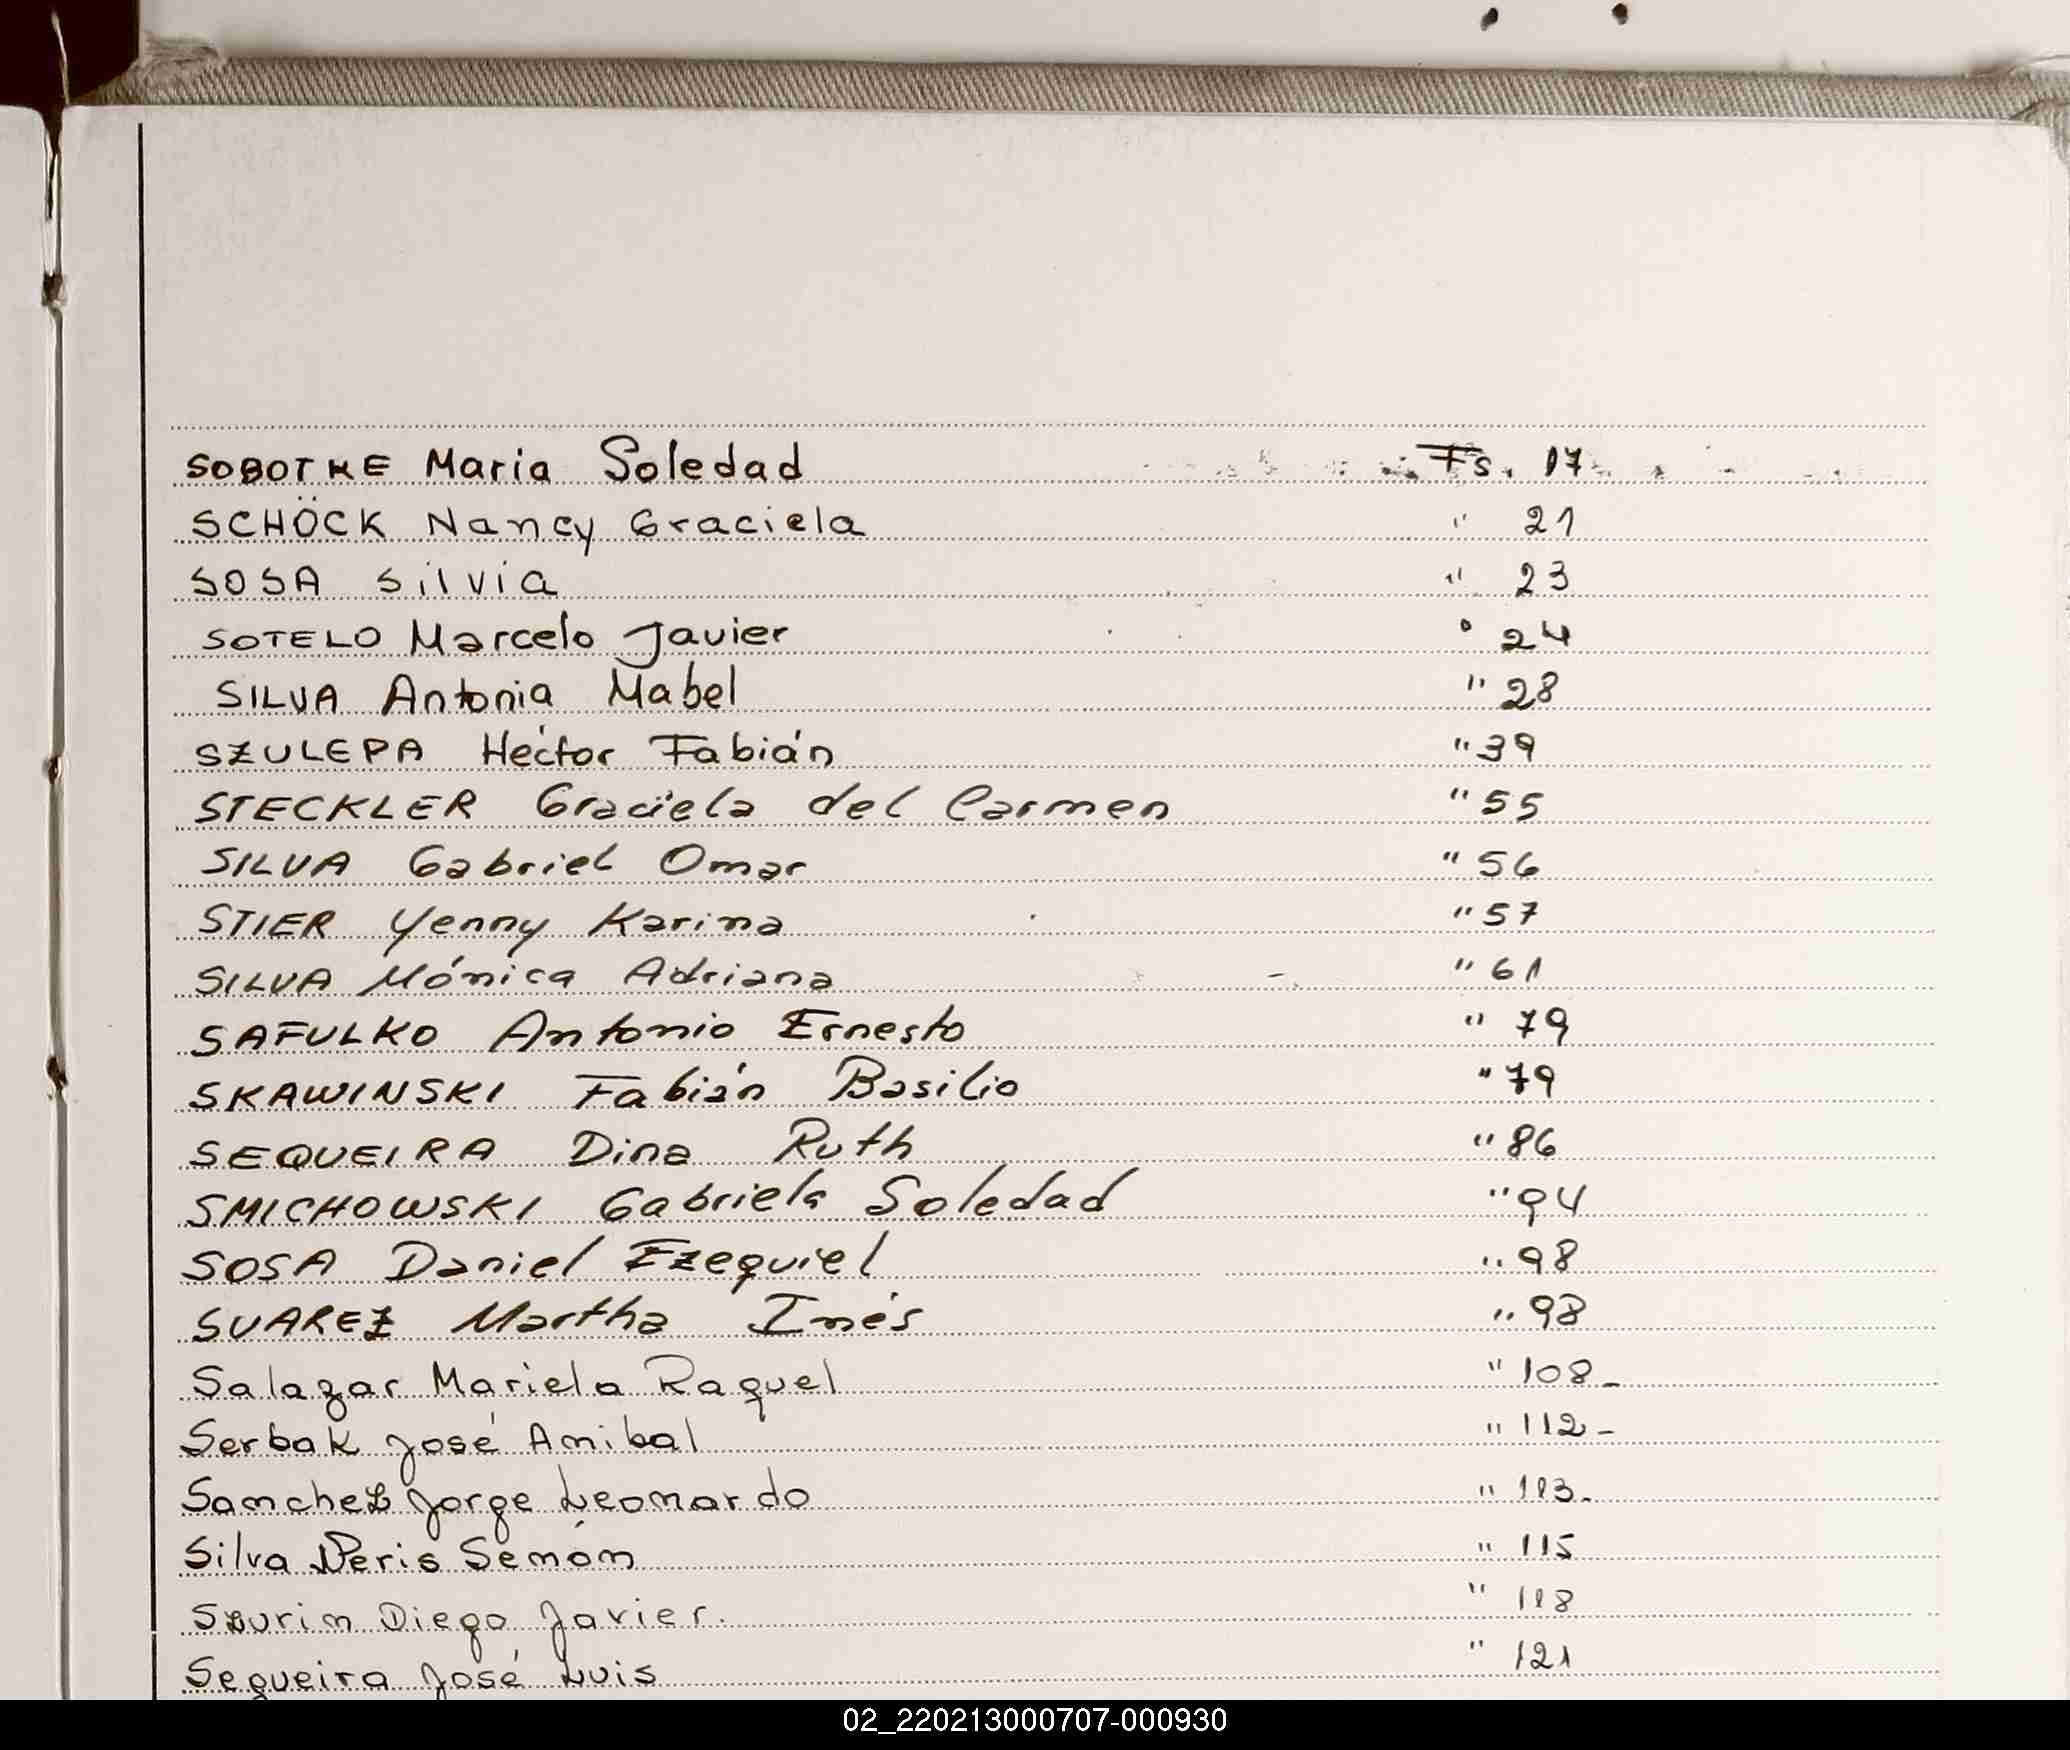 SOBOTKE Maria Soledad Fs. 17
SCHÖCK Nancy Graciela " 21
SOSA Silvia " 23
SOTELO Marcelo Javier " 24
SILVA Antonia Mabel " 28
SZULEPA Héctor Fabián " 39
STECKLER Graciela del Carmen " 55
SILVA Gabriel Omar " 56
STIER Yenny Karina " 57
SILVA Mónica Adriana " 61
SAFULKO Antonio Ernesto " 79
SKAWINSKI Fabián Basilio " 79
SEQUEIRA Dina Ruth " 86
SMICHOWSKI Gabriela Soledad " 94
SOSA Daniel Ezequiel " 98
SUAREZ Martha Inés " 98
Salazar Mariela Raquel " 108-
Serbak José Anibal " 112-
Sanchez Jorge Leonardo " 113-
Silva Neris Semón " 115
Szurin Diego Javier. " 118
Sequeira José Luis " 121
02_220213000707-000930